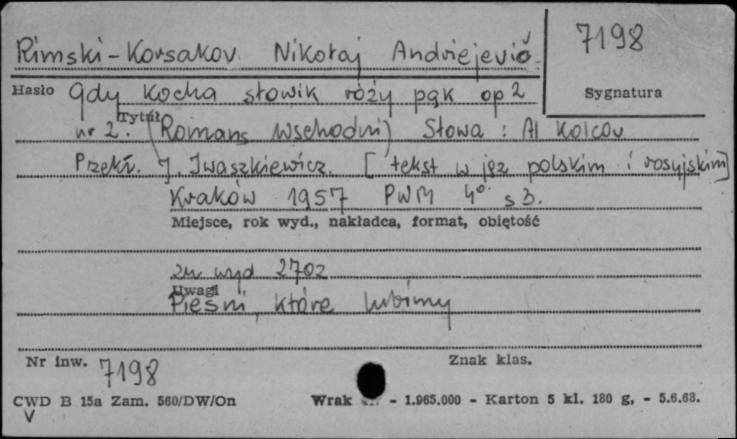 7198
Rimski-Korsakov Nikołaj Andriejevič
Hasło Gdy kocha słowik róży pąk op 2
Sygnatura
Tytuł
nr 2. (Romans wschodni) Słowa: Al Kolcov
Przekł. J. Iwaszkiewicz. [tekst w jęz polskim i rosyjskim]
Kraków 1957 PWM 4° s 3.
Miejsce, rok wyd., nakładca, format, objętość
zn wyd 2702
Uwagi
Pieśni, które lubimy
Nr inw. 7198
Znak klas.
CWD B 15a Zam. 560/DW/On
V
Wrak - 1.965.000 - Karton 5 kl. 180 g, - 5.6.68.